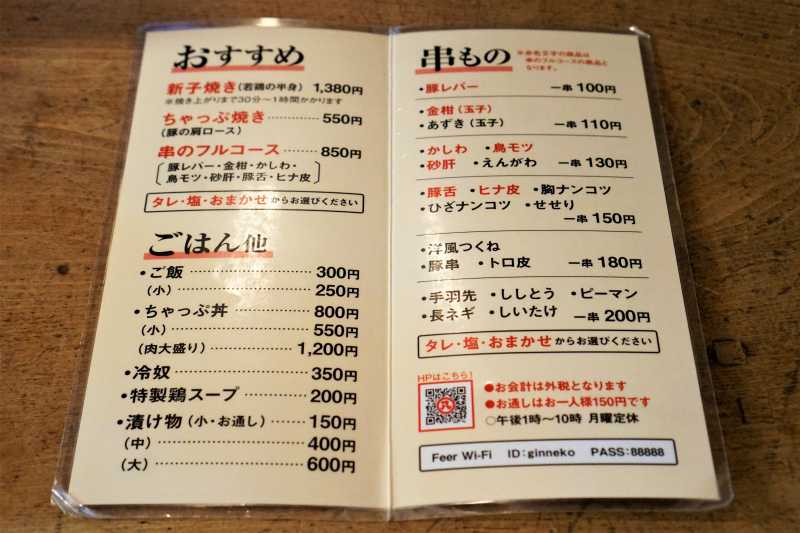 おすすめ
新子焼き(若鶏の半身) 1,380円
※焼き上がりまで30分〜1時間かかります
ちゃっぷ焼き………… 550円
(豚の肩ロース)
串のフルコース……… 850円
豚レバー・金柑・かしわ・
鳥モツ・砂肝・豚舌・ヒナ皮
タレ・塩・おまかせからお選びください
ごはん他
・ご飯………………… 300円
(小)………………… 250円
・ちゃっぷ丼………… 800円
(小)………………… 550円
(肉大盛り)………… 1,200円
・冷奴………………… 350円
・特製鶏スープ……… 200円
・漬け物(小・お通し)… 150円
(中)………………… 400円
(大)………………… 600円
串もの
※赤色文字の商品は
串のフルコースの商品と
なります。
・豚レバー 一串 100円
・金柑(玉子)
・あずき(玉子) 一串 110円
・かしわ ・鳥モツ
・砂肝 ・えんがわ 一串 130円
・豚舌 ・ヒナ皮 ・胸ナンコツ
・ひざナンコツ ・せせり
一串 150円
・洋風つくね
・豚串 ・トロ皮 一串 180円
・手羽先 ・ししとう ・ピーマン
・長ネギ ・しいたけ 一串 200円
タレ・塩・おまかせからお選びください
HPはこちら!
●お会計は外税となります
●お通しはお一人様150円です
○午後1時〜10時 月曜定休
Feer Wi-Fi ID:ginneko PASS:88888